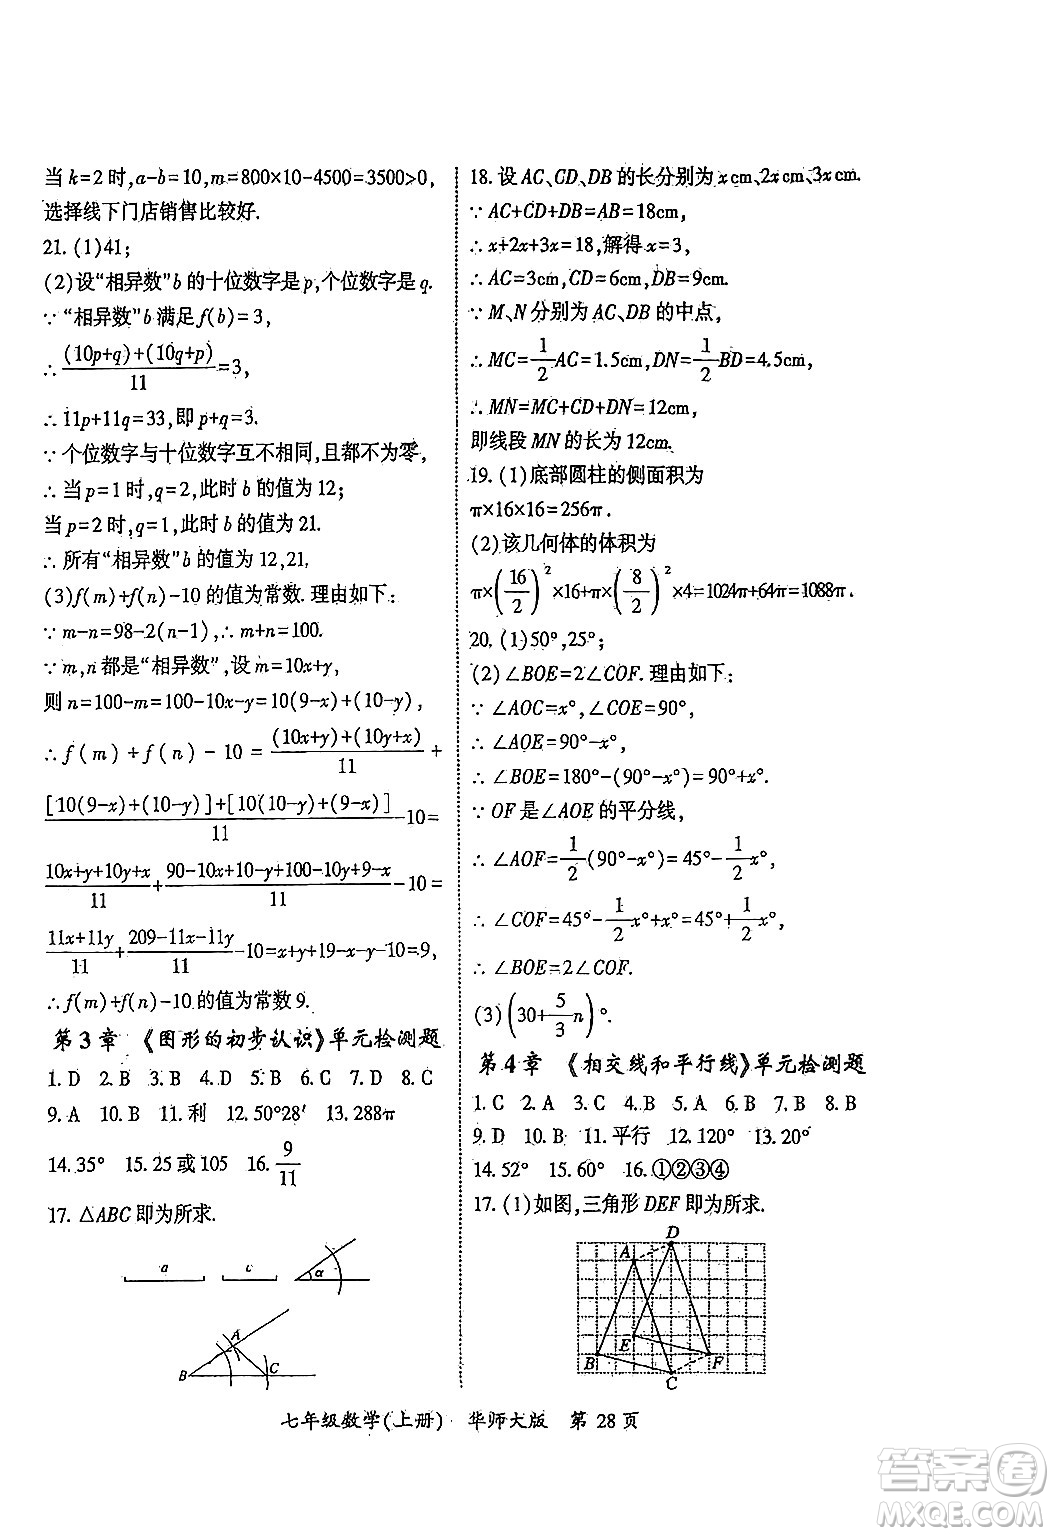 当 k=2 时,a-b=10,m=800×10-4500=3500>0,
选择线下门店销售比较好.
21. (1)41;
(2)设“相异数”b 的十位数字是 p,个位数字是 q.
∵ “相异数”b 满足 f(b)=3,
∴ \frac{(10p+q)+(10q+p)}{11}=3,
∴ 11p+11q=33,即 p+q=3.
∵ 个位数字与十位数字互不相同,且都不为零,
∴ 当 p=1 时,q=2,此时 b 的值为 12;
当 p=2 时,q=1,此时 b 的值为 21.
∴ 所有“相异数”b 的值为 12,21.
(3)f(m)+f(n)-10 的值为常数. 理由如下:
∵ m-n=98-2(n-1),∴ m+n=100.
∵ m,n 都是“相异数”,设 m=10x+y,
则 n=100-m=100-10x-y=10(9-x)+(10-y),
∴ f(m)+f(n)-10=\frac{(10x+y)+(10y+x)}{11}+
\frac{[10(9-x)+(10-y)]+[10(10-y)+(9-x)]}{11}-10=
\frac{10x+y+10y+x}{11}+\frac{90-10x+10-y+100-10y+9-x}{11}-10=
\frac{11x+11y}{11}+\frac{209-11x-11y}{11}-10=x+y+19-x-y-10=9,
∴ f(m)+f(n)-10 的值为常数 9.
第 3 章 《图形的初步认识》单元检测题
1. D 2. B 3. B 4. D 5. C 6. B 7. D 8. C
9. A 10. B 11. 利 12. 50°28′ 13. 288π
14. 35° 15. 25 或 105 16. \frac{9}{11}
17. △ABC 即为所求.
a c α
A
B C
18. 设 AC、CD、DB 的长分别为 x cm、2x cm、3x cm.
∵ AC+CD+DB=AB=18cm,
∴ x+2x+3x=18,解得 x=3,
∴ AC=3cm,CD=6cm,DB=9cm.
∵ M、N 分别为 AC、DB 的中点,
∴ MC=\frac{1}{2}AC=1.5cm,DN=\frac{1}{2}BD=4.5cm,
∴ MN=MC+CD+DN=12cm,
即线段 MN 的长为 12cm.
19. (1)底部圆柱的侧面积为
π×16×16=256π.
(2)该几何体的体积为
π×(\frac{16}{2})²×16+π×(\frac{8}{2})²×4=1024π+64π=1088π.
20. (1)50°,25°;
(2)∠BOE=2∠COF. 理由如下:
∵ ∠AOC=x°,∠COE=90°,
∴ ∠AOE=90°-x°,
∴ ∠BOE=180°-(90°-x°)=90°+x°.
∵ OF 是∠AOE 的平分线,
∴ ∠AOF=\frac{1}{2}(90°-x°)=45°-\frac{1}{2}x°,
∴ ∠COF=45°-\frac{1}{2}x°+x°=45°+\frac{1}{2}x°,
∴ ∠BOE=2∠COF.
(3)(30+\frac{5}{3}n)°.
第 4 章 《相交线和平行线》单元检测题
1. C 2. A 3. C 4. B 5. A 6. B 7. B 8. B
9. D 10. B 11. 平行 12. 120° 13. 20°
14. 52° 15. 60° 16. ①②③④
17. (1)如图,三角形 DEF 即为所求.
D
A
E
B F
C
七年级数学(上册) · 华师大版 第 28 页
答案圈
MXQE.COM